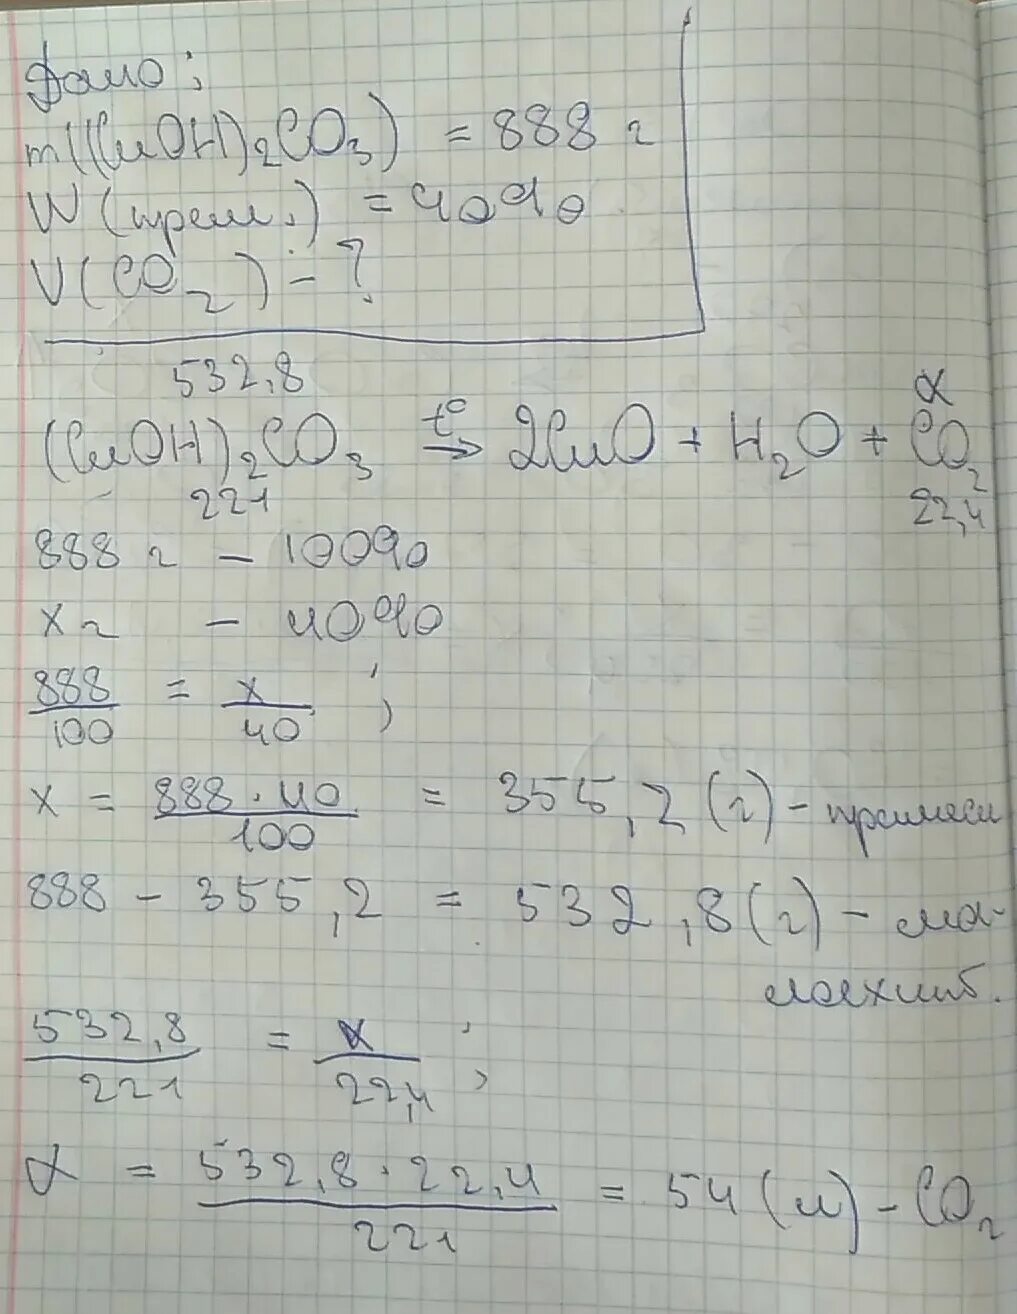 Дано:
m((CuOH)₂CO₃) = 888 г
W(прим.) = 40%
V(CO₂) - ?
532,8 x
(CuOH)₂CO₃ t° → 2CuO + H₂O + CO₂
221 22,4
888 г - 100%
x г - 40%
888/100 = x/40 ;
x = 888 · 40/100 = 355,2 (г) - примеси
888 - 355,2 = 532,8 (г) - ма-
лахит.
532,8/221 = x/22,4 ;
x = 532,8 · 22,4/221 = 54 (л) - CO₂